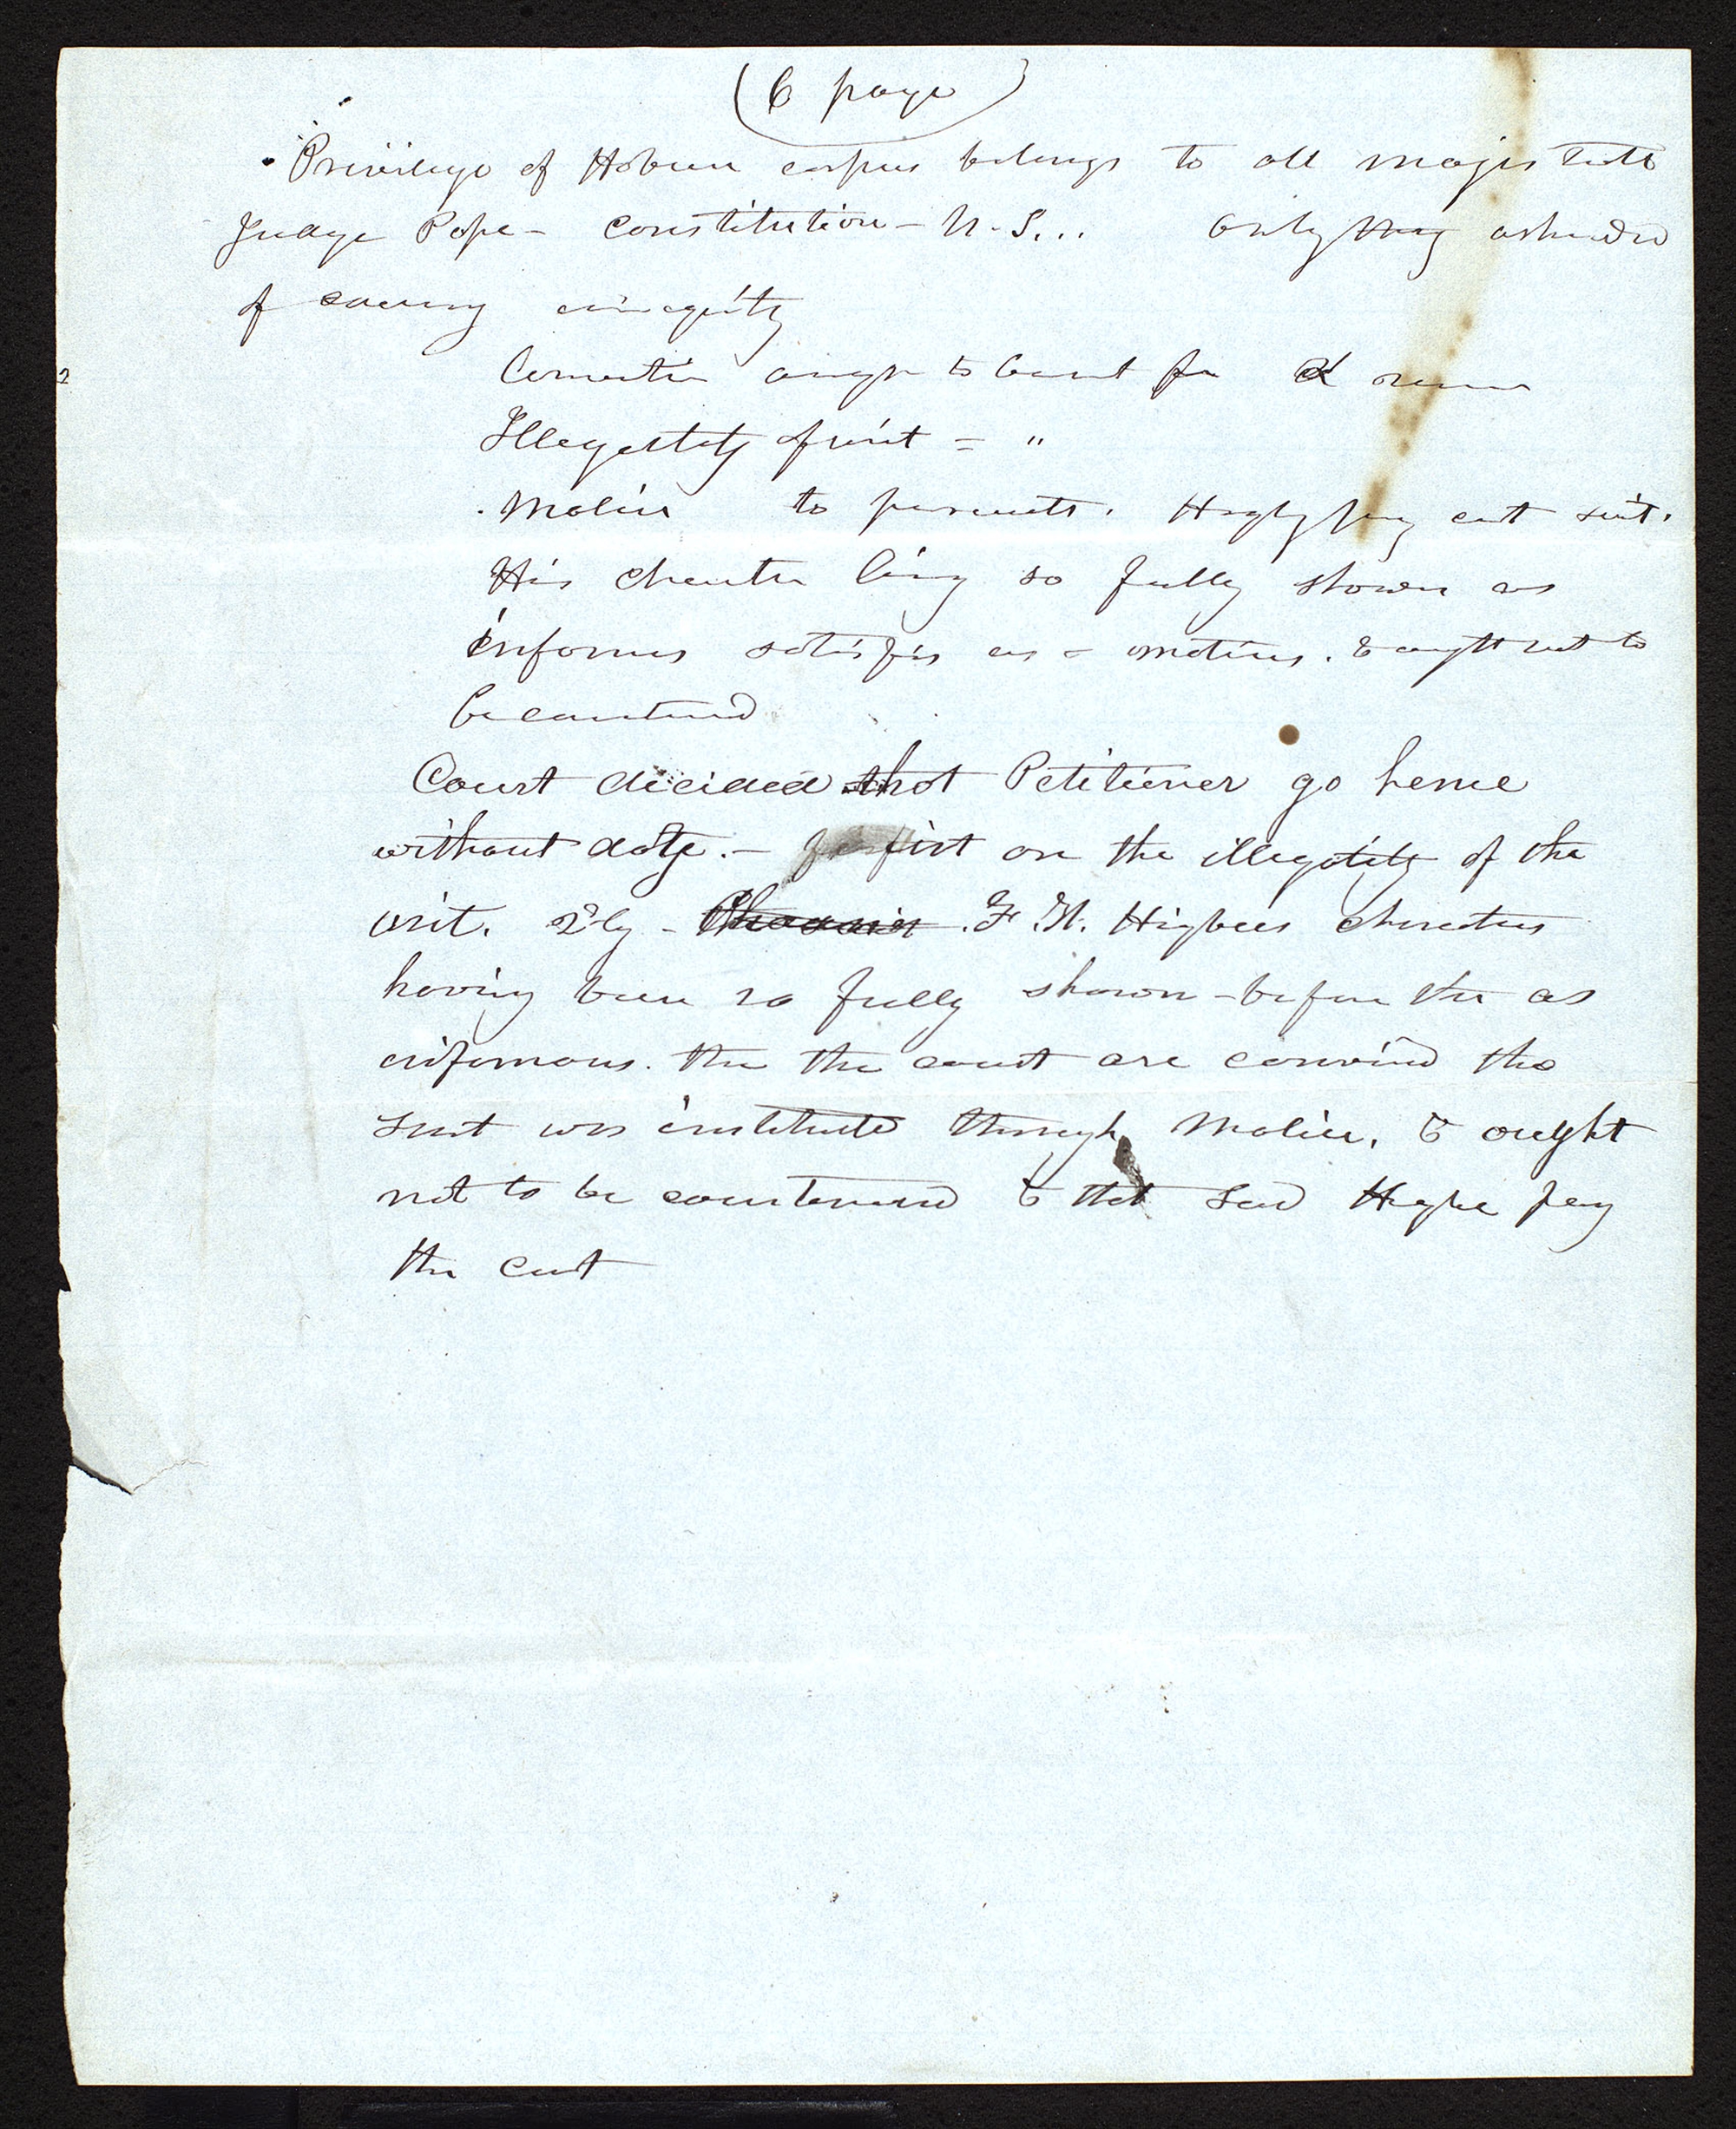 (6 page)
Privilege of Habeus corpus belongs to all magistrats
Judge Pope – Constitution – U. S... only thing ashamed
of iniquity
ought to for
Illegality of writ = "
Malice to persecute. Higby pay cost suit.
His charater being so fully shown as
infamus satisfis us & ought not to
be countend
Court decided that Petitioner go hence
without daty. – first on the illegality of the
writ. 2dly – F. M. Higbees charecters
having been so fully shown – before the as
infamous. the the court are convind the
suit was institute through Malice, & ought
not to be countenand & that said Higbe pay
the cost